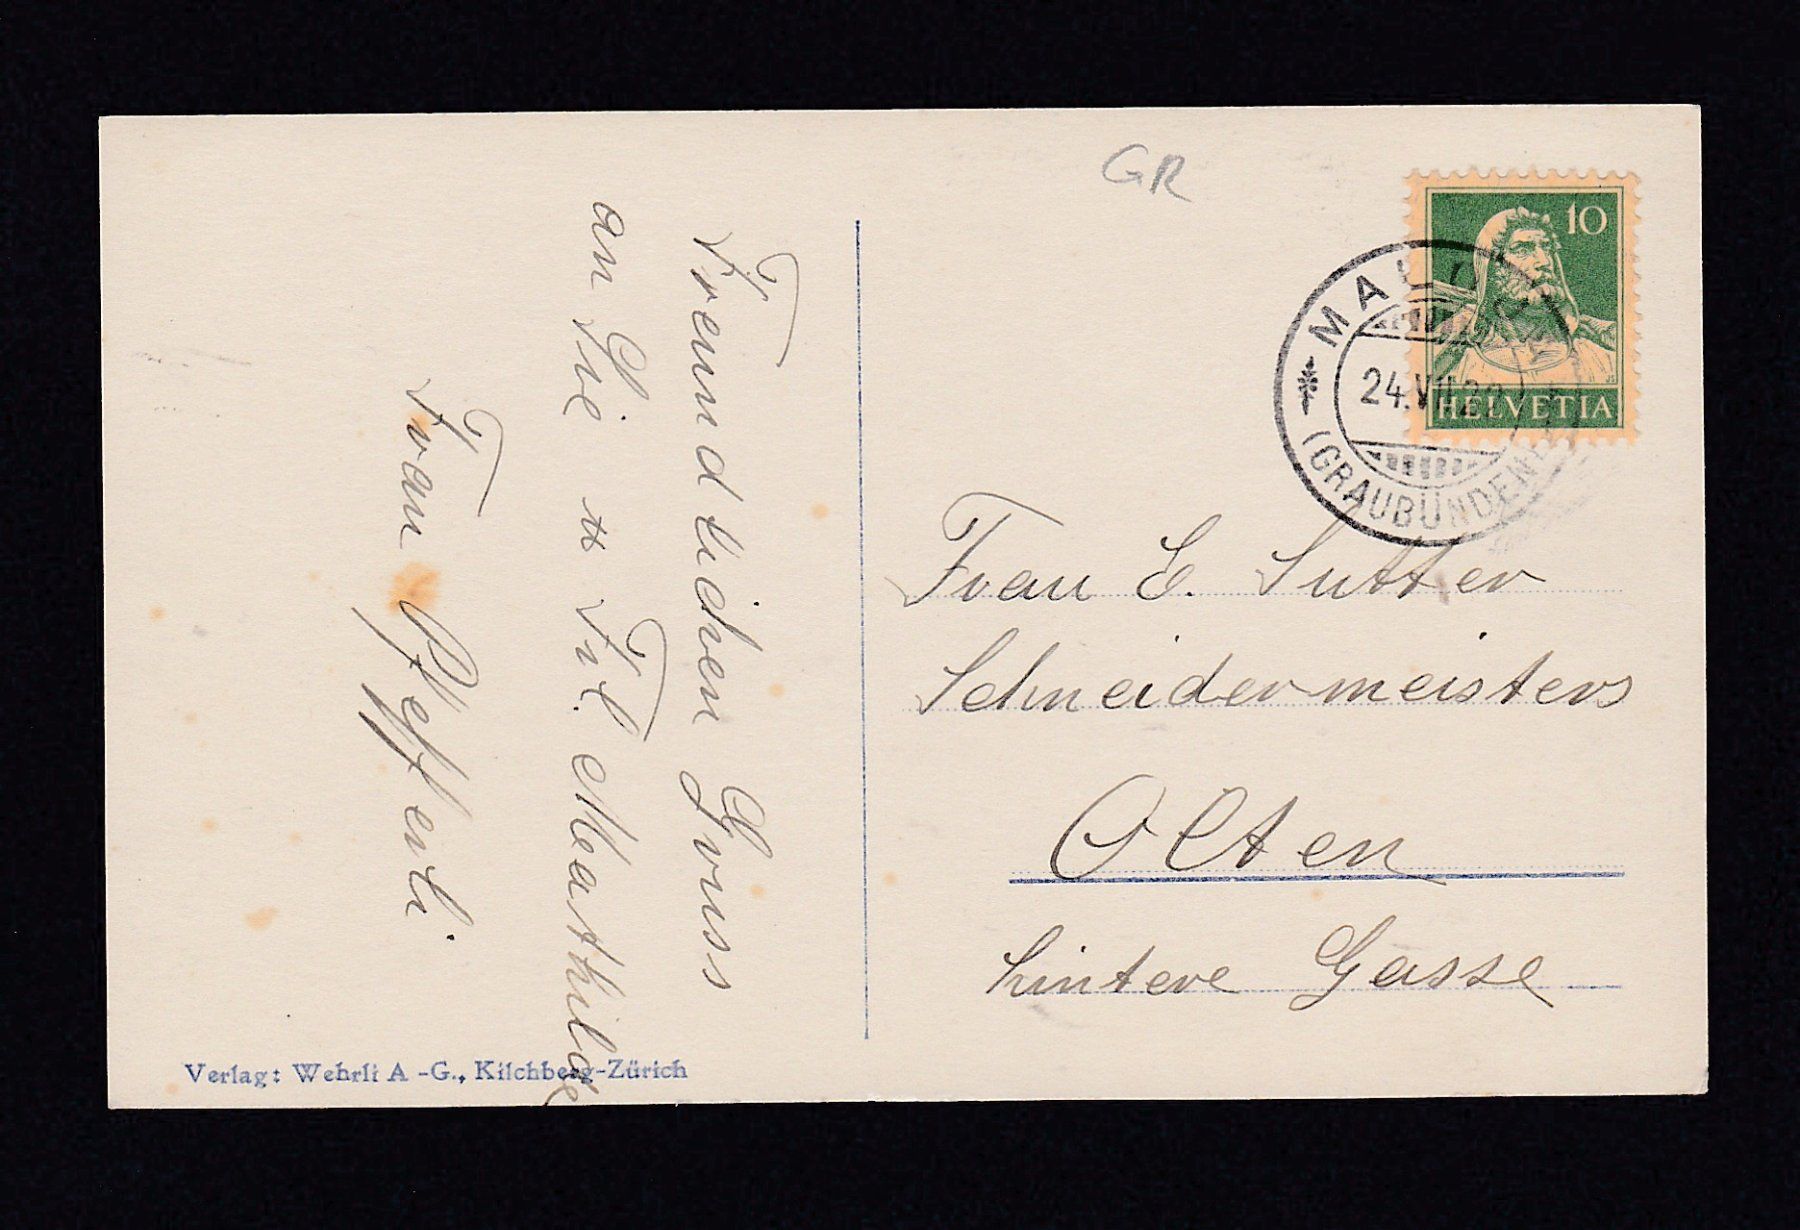 Freundlichen Gruss
an Sie u Frl. Mathilde
Frau Pfefferli
GR
10
HELVETIA
MALIX
24.VII.29
(GRAUBÜNDEN)
Frau E. Sutter
Schneidermeisters
Olten
hintere Gasse
Verlag: Wehrli A-G., Kilchberg-Zürich